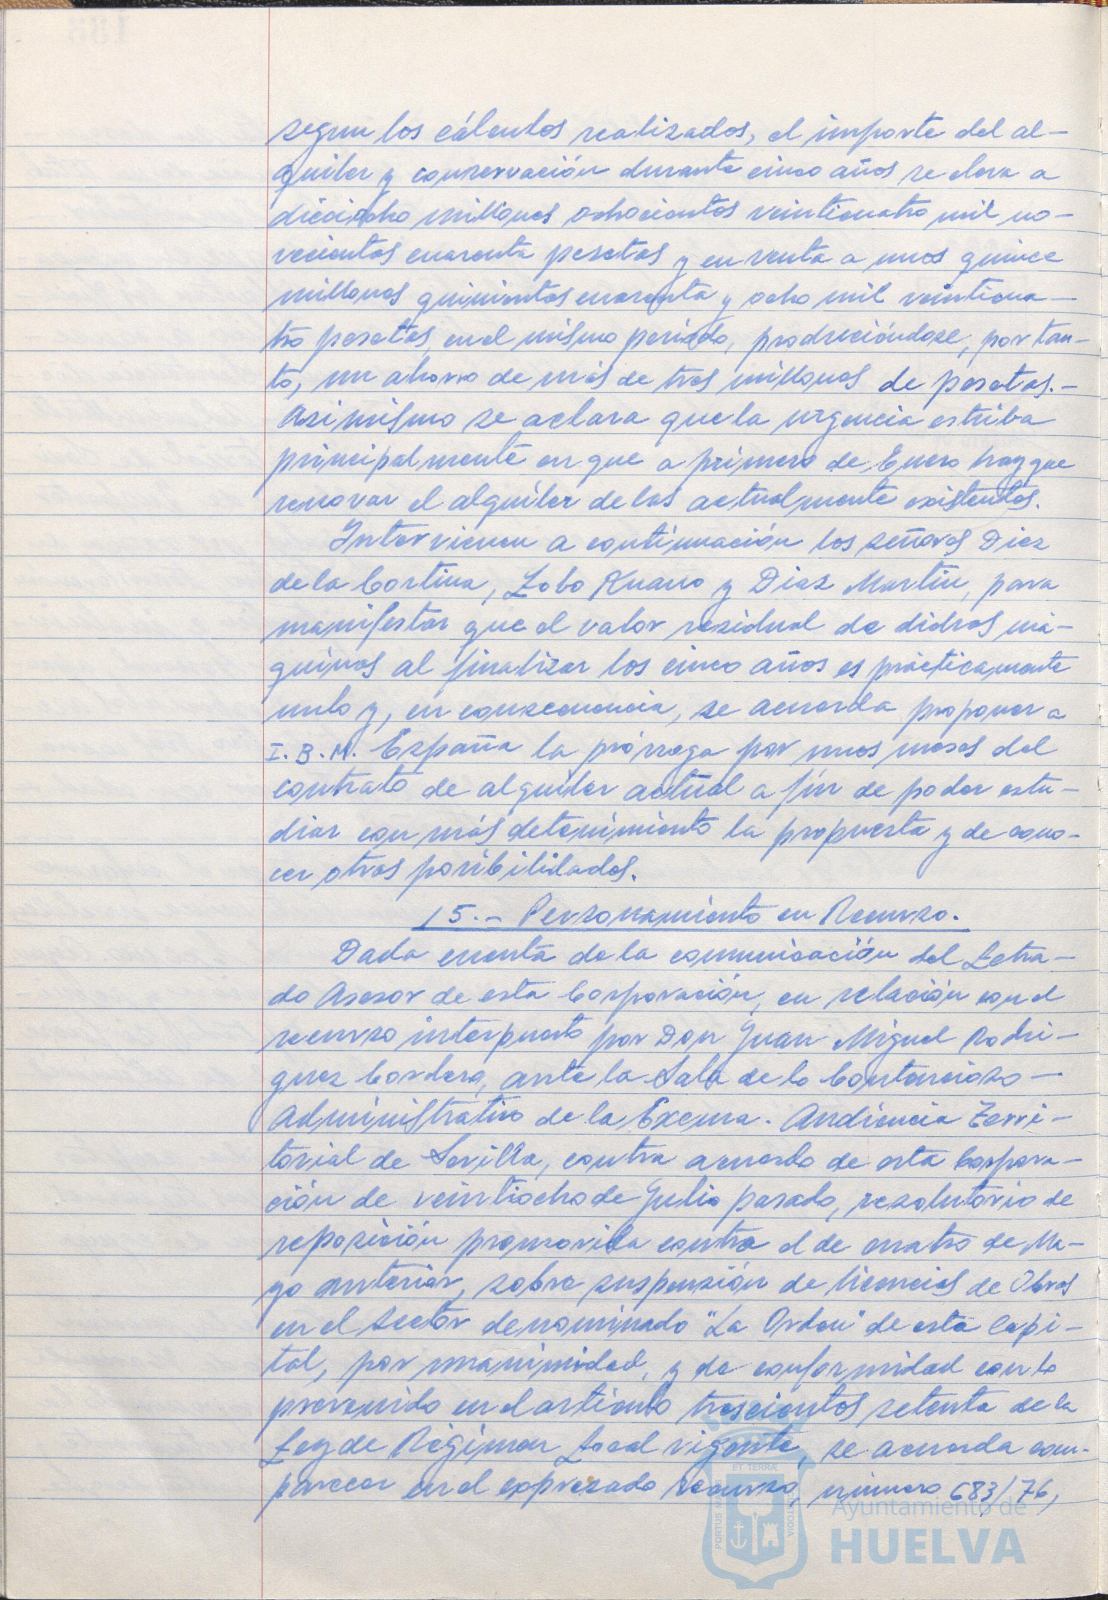 segun los cálculos realizados, el importe del al-
quiler y conservación durante cinco años se eleva a
dieciocho millones ochocientos veinticuatro mil no-
vecientas cuarenta pesetas y en venta a unos quince
millones quinientas cuarenta y ocho mil veinticua-
tro pesetas, en el mismo periodo, produciéndose, por tan-
to, un ahorro de más de tres millones de pesetas.-
Asimismo se aclara que la urgencia estriba
principalmente en que a primero de Enero hay que
renovar el alquiler de las actualmente existentes.
Intervienen a continuación los señores Diez
de la Cortina, Lobo Ruano y Diaz Martin, para
manifestar que el valor residual de dichas má-
quinas al finalizar los cinco años es prácticamente
nulo y, en consecuencia, se acuerda proponer a
I.B.M. España la prórroga por unos meses del
contrato de alquiler actual a fin de poder estu-
diar con más detenimiento la propuesta y de cono-
cer otras posibilidades.
15.- Personamiento en Recurso.
Dada cuenta de la comunicación del Letra-
do Asesor de esta Corporación, en relación con el
recurso interpuesto por Don Juan Miguel Rodri-
guez Cordero, ante la Sala de lo Contencioso-
Administrativo de la Excma. Audiencia Terri-
torial de Sevilla, contra acuerdo de esta Corpora-
ción de veintiocho de Julio pasado, resolutorio de
reposición promovida contra el de cuatro de Ma-
yo anterior, sobre suspensión de licencias de Obras
en el Sector denominado "La Orden" de esta Capi-
tal, por unanimidad, y de conformidad con lo
prevenido en el artículo trescientos setenta de la
Ley de Régimen Local vigente, se acuerda com-
parecer en el expresado recurso, número 683/76,
PORTUS MARIS ET TERRAE CUSTODIA
Ayuntamiento de
HUELVA